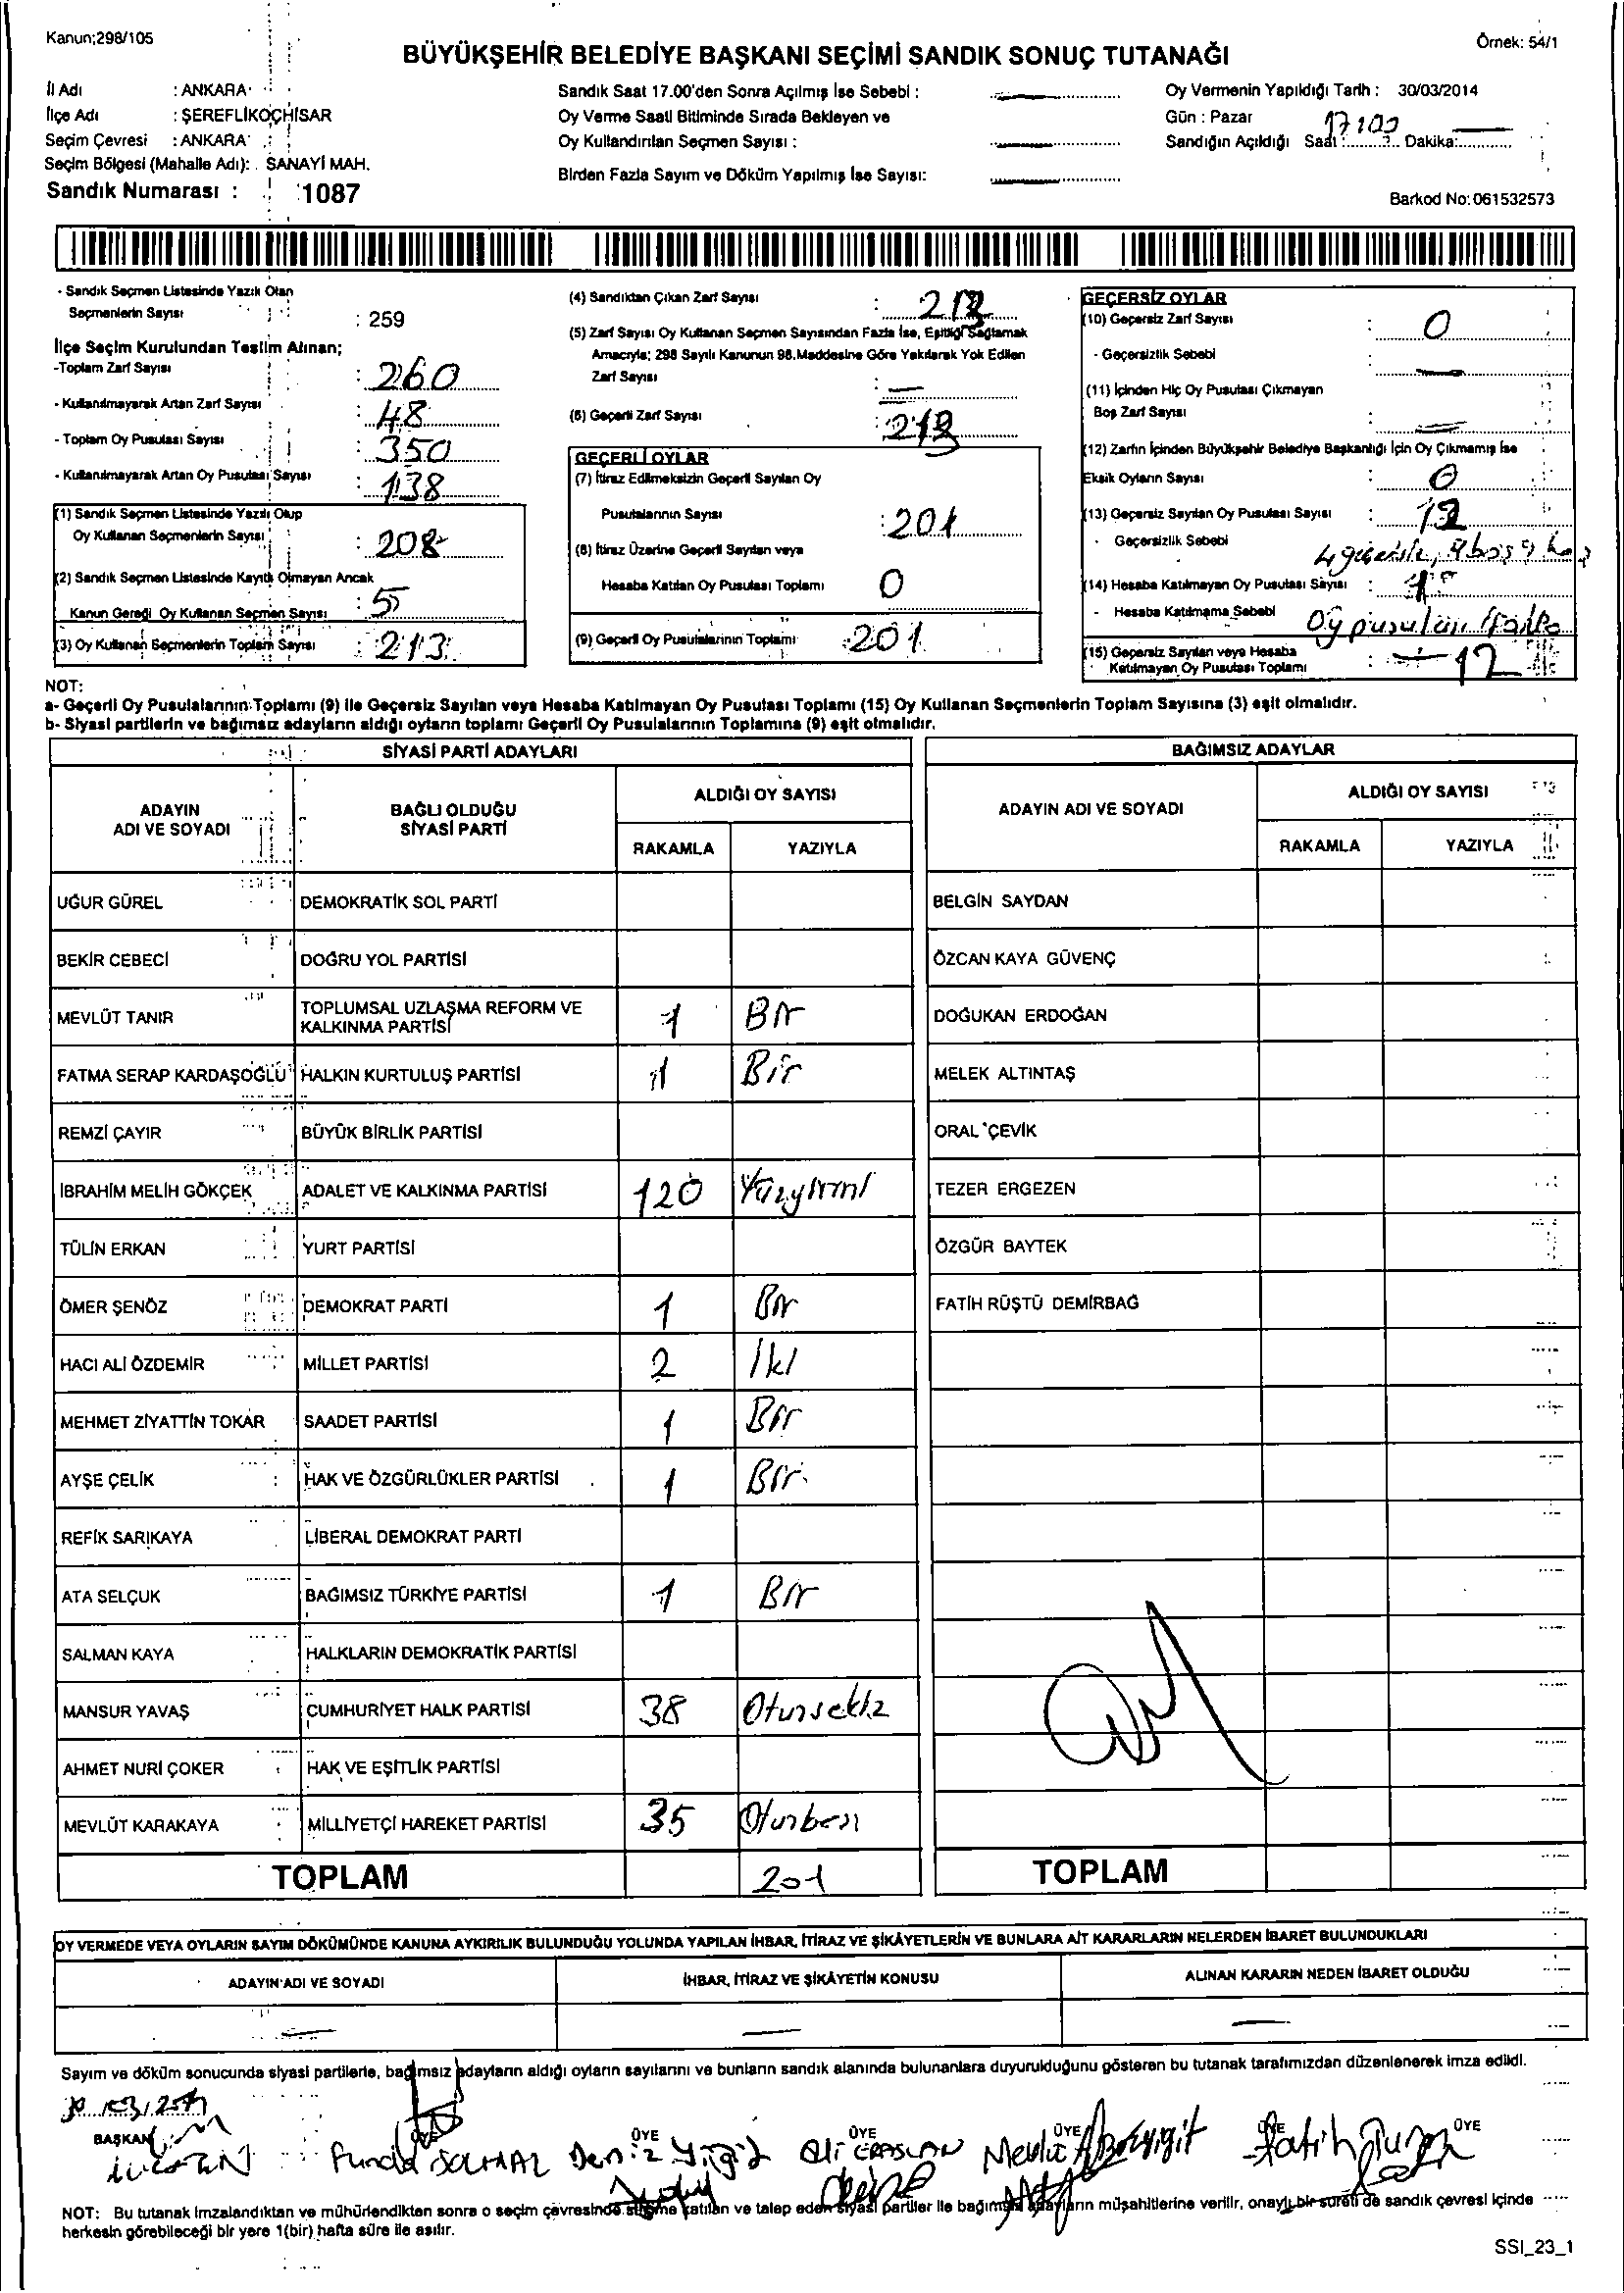 Kanun;298/105
Örnek: 54/1
BÜYÜKŞEHİR BELEDİYE BAŞKANI SEÇİMİ SANDIK SONUÇ TUTANAĞI
İl Adı : ANKARA
İlçe Adı : ŞEREFLİKOÇHİSAR
Seçim Çevresi : ANKARA
Seçim Bölgesi (Mahalle Adı): SANAYİ MAH.
Sandık Numarası : 1087
Sandık Saat 17.00'den Sonra Açılmış İse Sebebi :
Oy Verme Saati Bitiminde Sırada Bekleyen ve
Oy Kullandırılan Seçmen Sayısı :
Birden Fazla Sayım ve Döküm Yapılmış İse Sayısı:
Oy Vermenin Yapıldığı Tarih : 30/03/2014
Gün : Pazar
Sandığın Açıldığı Saat : 17:00 Dakika:
Barkod No: 061532573
- Sandık Seçmen Listesinde Yazılı Olan
Seçmenlerin Sayısı : 259
İlçe Seçim Kurulundan Teslim Alınan;
-Toplam Zarf Sayısı : 260
- Kullanılmayarak Artan Zarf Sayısı : 48
- Toplam Oy Pusulası Sayısı : 350
- Kullanılmayarak Artan Oy Pusulası Sayısı : 138
(1) Sandık Seçmen Listesinde Yazılı Olup
Oy Kullanan Seçmenlerin Sayısı : 208
(2) Sandık Seçmen Listesinde Kayıtlı Olmayan Ancak
Kanun Gereği Oy Kullanan Seçmen Sayısı : 5
(3) Oy Kullanan Seçmenlerin Toplam Sayısı : 213
(4) Sandıktan Çıkan Zarf Sayısı :
(5) Zarf Sayısı Oy Kullanan Seçmen Sayısından Fazla İse, Eşitliği Sağlamak
Amacıyla; 298 Sayılı Kanunun 98.Maddesine Göre Yakılarak Yok Edilen
Zarf Sayısı : —
(6) Geçerli Zarf Sayısı :
GEÇERLİ OYLAR
(7) İtiraz Edilmeksizin Geçerli Sayılan Oy
Pusulalarının Sayısı : 201
(8) İtiraz Üzerine Geçerli Sayılan veya
Hesaba Katılan Oy Pusulası Toplamı 0
(9) Geçerli Oy Pusulalarının Toplamı : 201
GEÇERSİZ OYLAR
(10) Geçersiz Zarf Sayısı : 0
- Geçersizlik Sebebi : —
(11) İçinden Hiç Oy Pusulası Çıkmayan
Boş Zarf Sayısı : —
(12) Zarfın İçinden Büyükşehir Belediye Başkanlığı İçin Oy Çıkmamış İse
Eksik Oyların Sayısı : 0
(13) Geçersiz Sayılan Oy Pusulası Sayısı :
- Geçersizlik Sebebi
(14) Hesaba Katılmayan Oy Pusulası Sayısı :
- Hesaba Katılmama Sebebi
(15) Geçersiz Sayılan veya Hesaba
Katılmayan Oy Pusulası Toplamı : 12
NOT:
a- Geçerli Oy Pusulalarının Toplamı (9) ile Geçersiz Sayılan veya Hesaba Katılmayan Oy Pusulası Toplamı (15) Oy Kullanan Seçmenlerin Toplam Sayısına (3) eşit olmalıdır.
b- Siyasi partilerin ve bağımsız adayların aldığı oyların toplamı Geçerli Oy Pusulalarının Toplamına (9) eşit olmalıdır.
SİYASİ PARTİ ADAYLARI
ADAYIN ADI VE SOYADI BAĞLI OLDUĞU SİYASİ PARTİ ALDIĞI OY SAYISI
RAKAMLA YAZIYLA
UĞUR GÜREL DEMOKRATİK SOL PARTİ
BEKİR CEBECİ DOĞRU YOL PARTİSİ
MEVLÜT TANIR TOPLUMSAL UZLAŞMA REFORM VE KALKINMA PARTİSİ 1 Bir
FATMA SERAP KARDAŞOĞLU HALKIN KURTULUŞ PARTİSİ 1 Bir
REMZİ ÇAYIR BÜYÜK BİRLİK PARTİSİ
İBRAHİM MELİH GÖKÇEK ADALET VE KALKINMA PARTİSİ 120 Yüzyirmi
TÜLİN ERKAN YURT PARTİSİ
ÖMER ŞENÖZ DEMOKRAT PARTİ 1 Bir
HACI ALİ ÖZDEMİR MİLLET PARTİSİ 2 İki
MEHMET ZİYATTİN TOKAR SAADET PARTİSİ 1 Bir
AYŞE ÇELİK HAK VE ÖZGÜRLÜKLER PARTİSİ 1 Bir
REFİK SARIKAYA LİBERAL DEMOKRAT PARTİ
ATA SELÇUK BAĞIMSIZ TÜRKİYE PARTİSİ 1 Bir
SALMAN KAYA HALKLARIN DEMOKRATİK PARTİSİ
MANSUR YAVAŞ CUMHURİYET HALK PARTİSİ 38 Otuzsekiz
AHMET NURİ ÇOKER HAK VE EŞİTLİK PARTİSİ
MEVLÜT KARAKAYA MİLLİYETÇİ HAREKET PARTİSİ 35 Otuzbeş
TOPLAM 201
BAĞIMSIZ ADAYLAR
ADAYIN ADI VE SOYADI ALDIĞI OY SAYISI
RAKAMLA YAZIYLA
BELGİN SAYDAN
ÖZCAN KAYA GÜVENÇ
DOĞUKAN ERDOĞAN
MELEK ALTINTAŞ
ORAL ÇEVİK
TEZER ERGEZEN
ÖZGÜR BAYTEK
FATİH RÜŞTÜ DEMİRBAĞ
TOPLAM
OY VERMEDE VEYA OYLARIN SAYIM DÖKÜMÜNDE KANUNA AYKIRILIK BULUNDUĞU YOLUNDA YAPILAN İHBAR, İTİRAZ VE ŞİKÂYETLERİN VE BUNLARA AİT KARARLARIN NELERDEN İBARET BULUNDUKLARI
ADAYIN ADI VE SOYADI İHBAR, İTİRAZ VE ŞİKÂYETİN KONUSU ALINAN KARARIN NEDEN İBARET OLDUĞU
— — —
Sayım ve döküm sonucunda siyasi partilerle, bağımsız adayların aldığı oyların sayılarını ve bunların sandık alanında bulunanlara duyurulduğunu gösteren bu tutanak tarafımızdan düzenlenerek imza edildi.
BAŞKAN ÜYE ÜYE ÜYE ÜYE ÜYE
Funda Deniz Yiğit Ali ERASLAN Fatih
NOT: Bu tutanak imzalandıktan ve mühürlendikten sonra o seçim çevresinde seçime katılan ve talep eden siyasi partiler ile bağımsız adayların müşahitlerine verilir, onaylı bir sureti de sandık çevresi içinde
herkesin görebileceği bir yere 1(bir) hafta süre ile asılır.
SSI_23_1